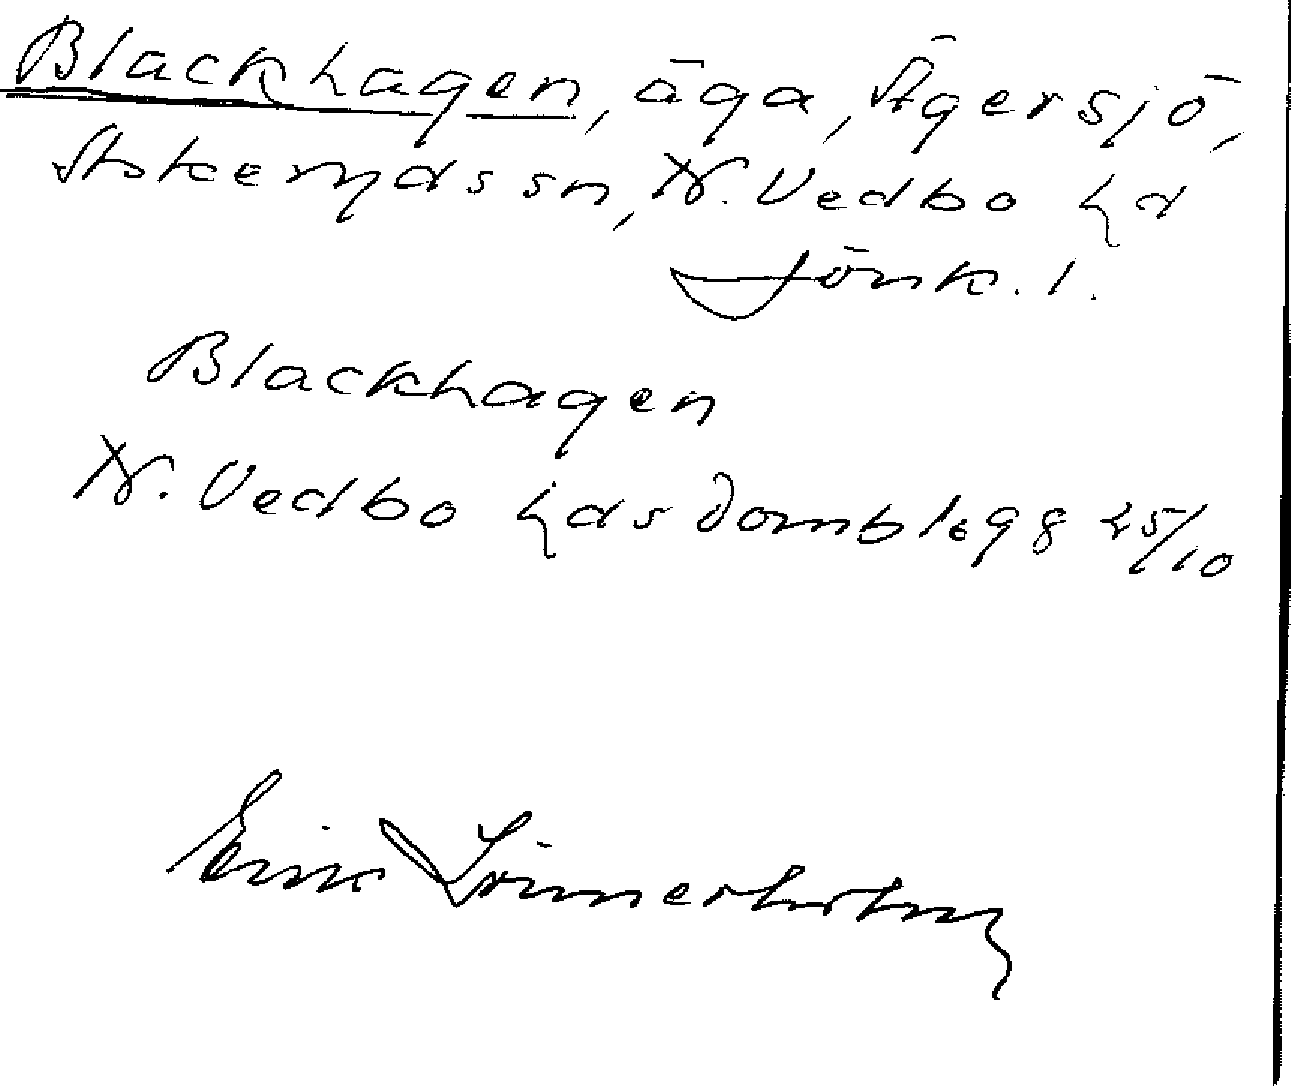 Blackhagen, äga, Ägersjö,
Askeryds sn, N. Vedbo hd
Jönk. l.
Blackhagen
N. Vedbo hds domb 1698 25/10
Erik Lönnerholm